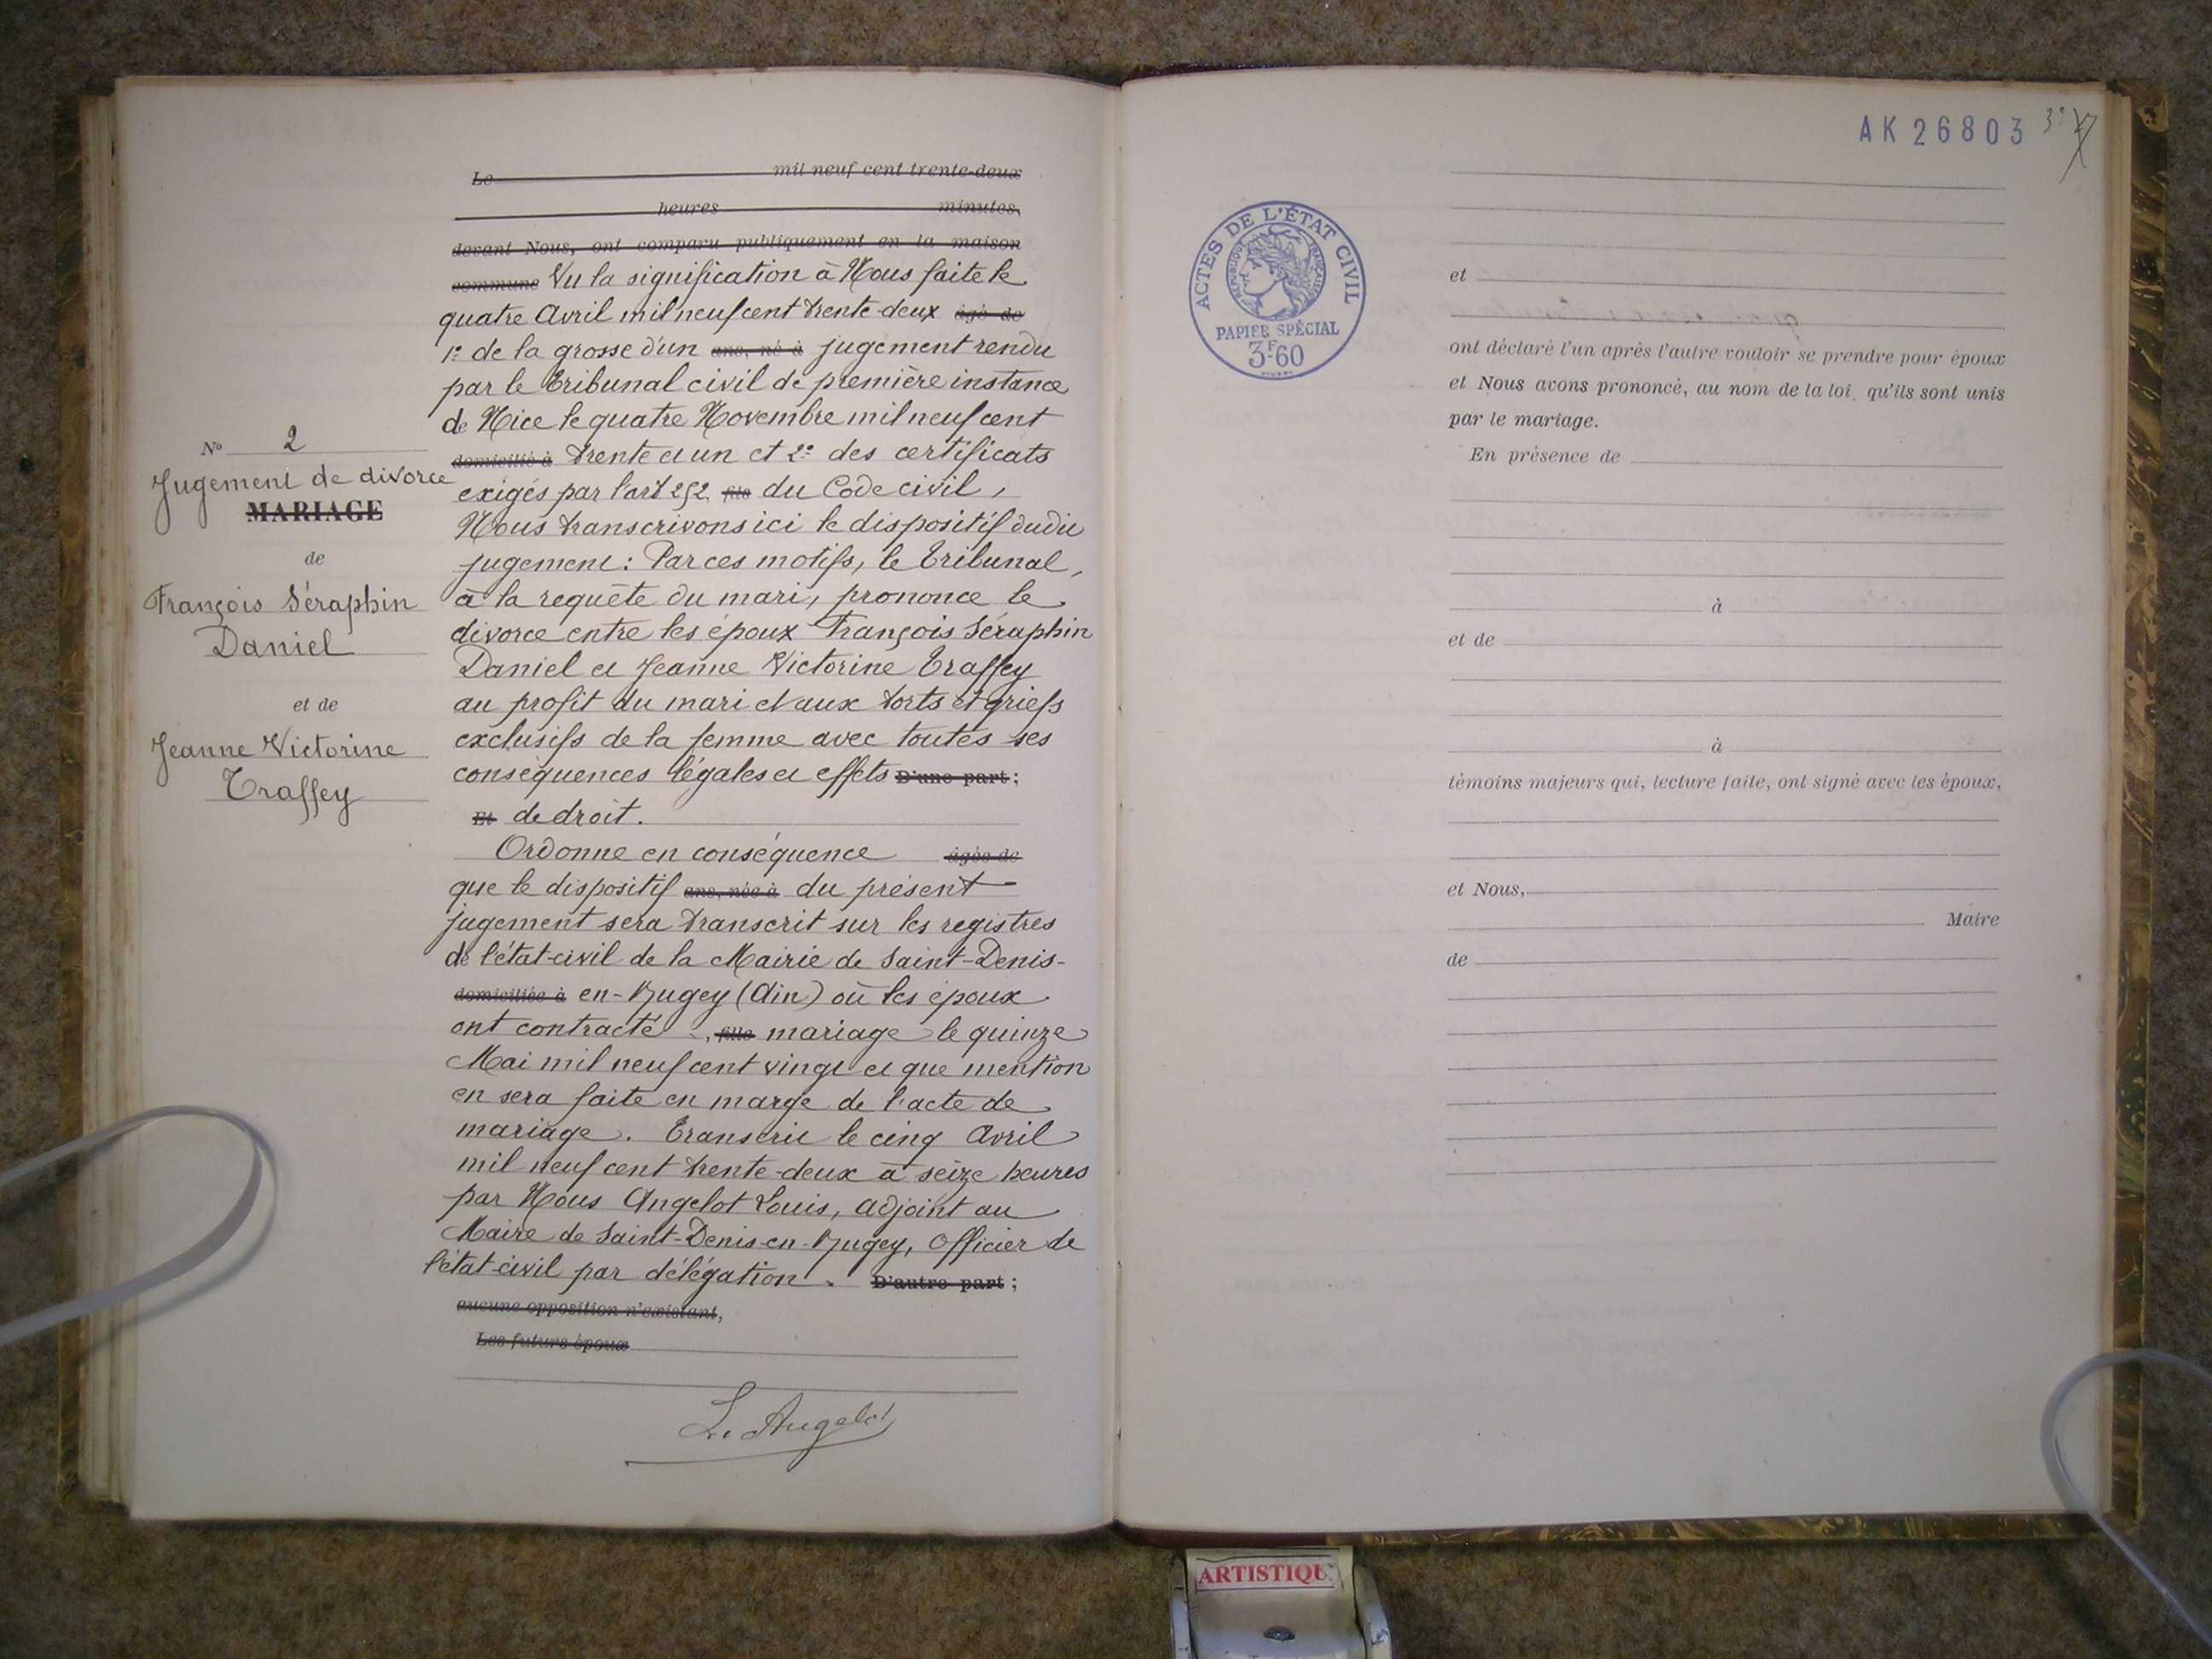 Le mil neuf cent trente-deux
heures minutes,
devant Nous, ont comparu publiquement en la maison
commune Vu la signification à Nous faite le
quatre Avril mil neuf cent trente-deux âgé de
1º de la grosse d'un ans, né à jugement rendu
par le Tribunal civil de première instance
de Nice le quatre Novembre mil neuf cent
domicilié à trente et un et 2º des certificats
exigés par l'art 252 fils du Code civil,
Nous transcrivons ici le dispositif dudit
jugement : Par ces motifs, le Tribunal,
à la requête du mari, prononce le
divorce entre les époux François Séraphin
Daniel et Jeanne Victorine Traffey
au profit du mari et aux torts et griefs
exclusifs de la femme avec toutes ses
conséquences légales et effets D'une part ;
Et de droit.
Ordonne en conséquence âgée de
que le dispositif ans, née à du présent
jugement sera transcrit sur les registres
de l'état-civil de la Mairie de Saint-Denis-
domiciliée à en-Bugey (Ain) où les époux
ont contracté , fille mariage le quinze
Mai mil neuf cent vingt et que mention
en sera faite en marge de l'acte de
mariage. Transcrit le cinq Avril
mil neuf cent trente-deux à seize heures
par Nous Angelot Louis, adjoint au
Maire de Saint-Denis-en-Bugey, Officier de
l'état-civil par délégation. D'autre part ;
aucune opposition n'existant,
Les futurs époux
L. Angelot
Nº 2
Jugement de divorce
MARIAGE
de
François Séraphin
Daniel
et de
Jeanne Victorine
Traffey
AK 26803
3e
ACTES DE L'ÉTAT CIVIL
RÉPUBLIQUE FRANÇAISE
PAPIER SPÉCIAL
3F.60
et
ont déclaré l'un après l'autre vouloir se prendre pour époux
et Nous avons prononcé, au nom de la loi, qu'ils sont unis
par le mariage.
En présence de
à
et de
à
témoins majeurs qui, lecture faite, ont signé avec les époux,
et Nous,
Maire
de
ARTISTIQU